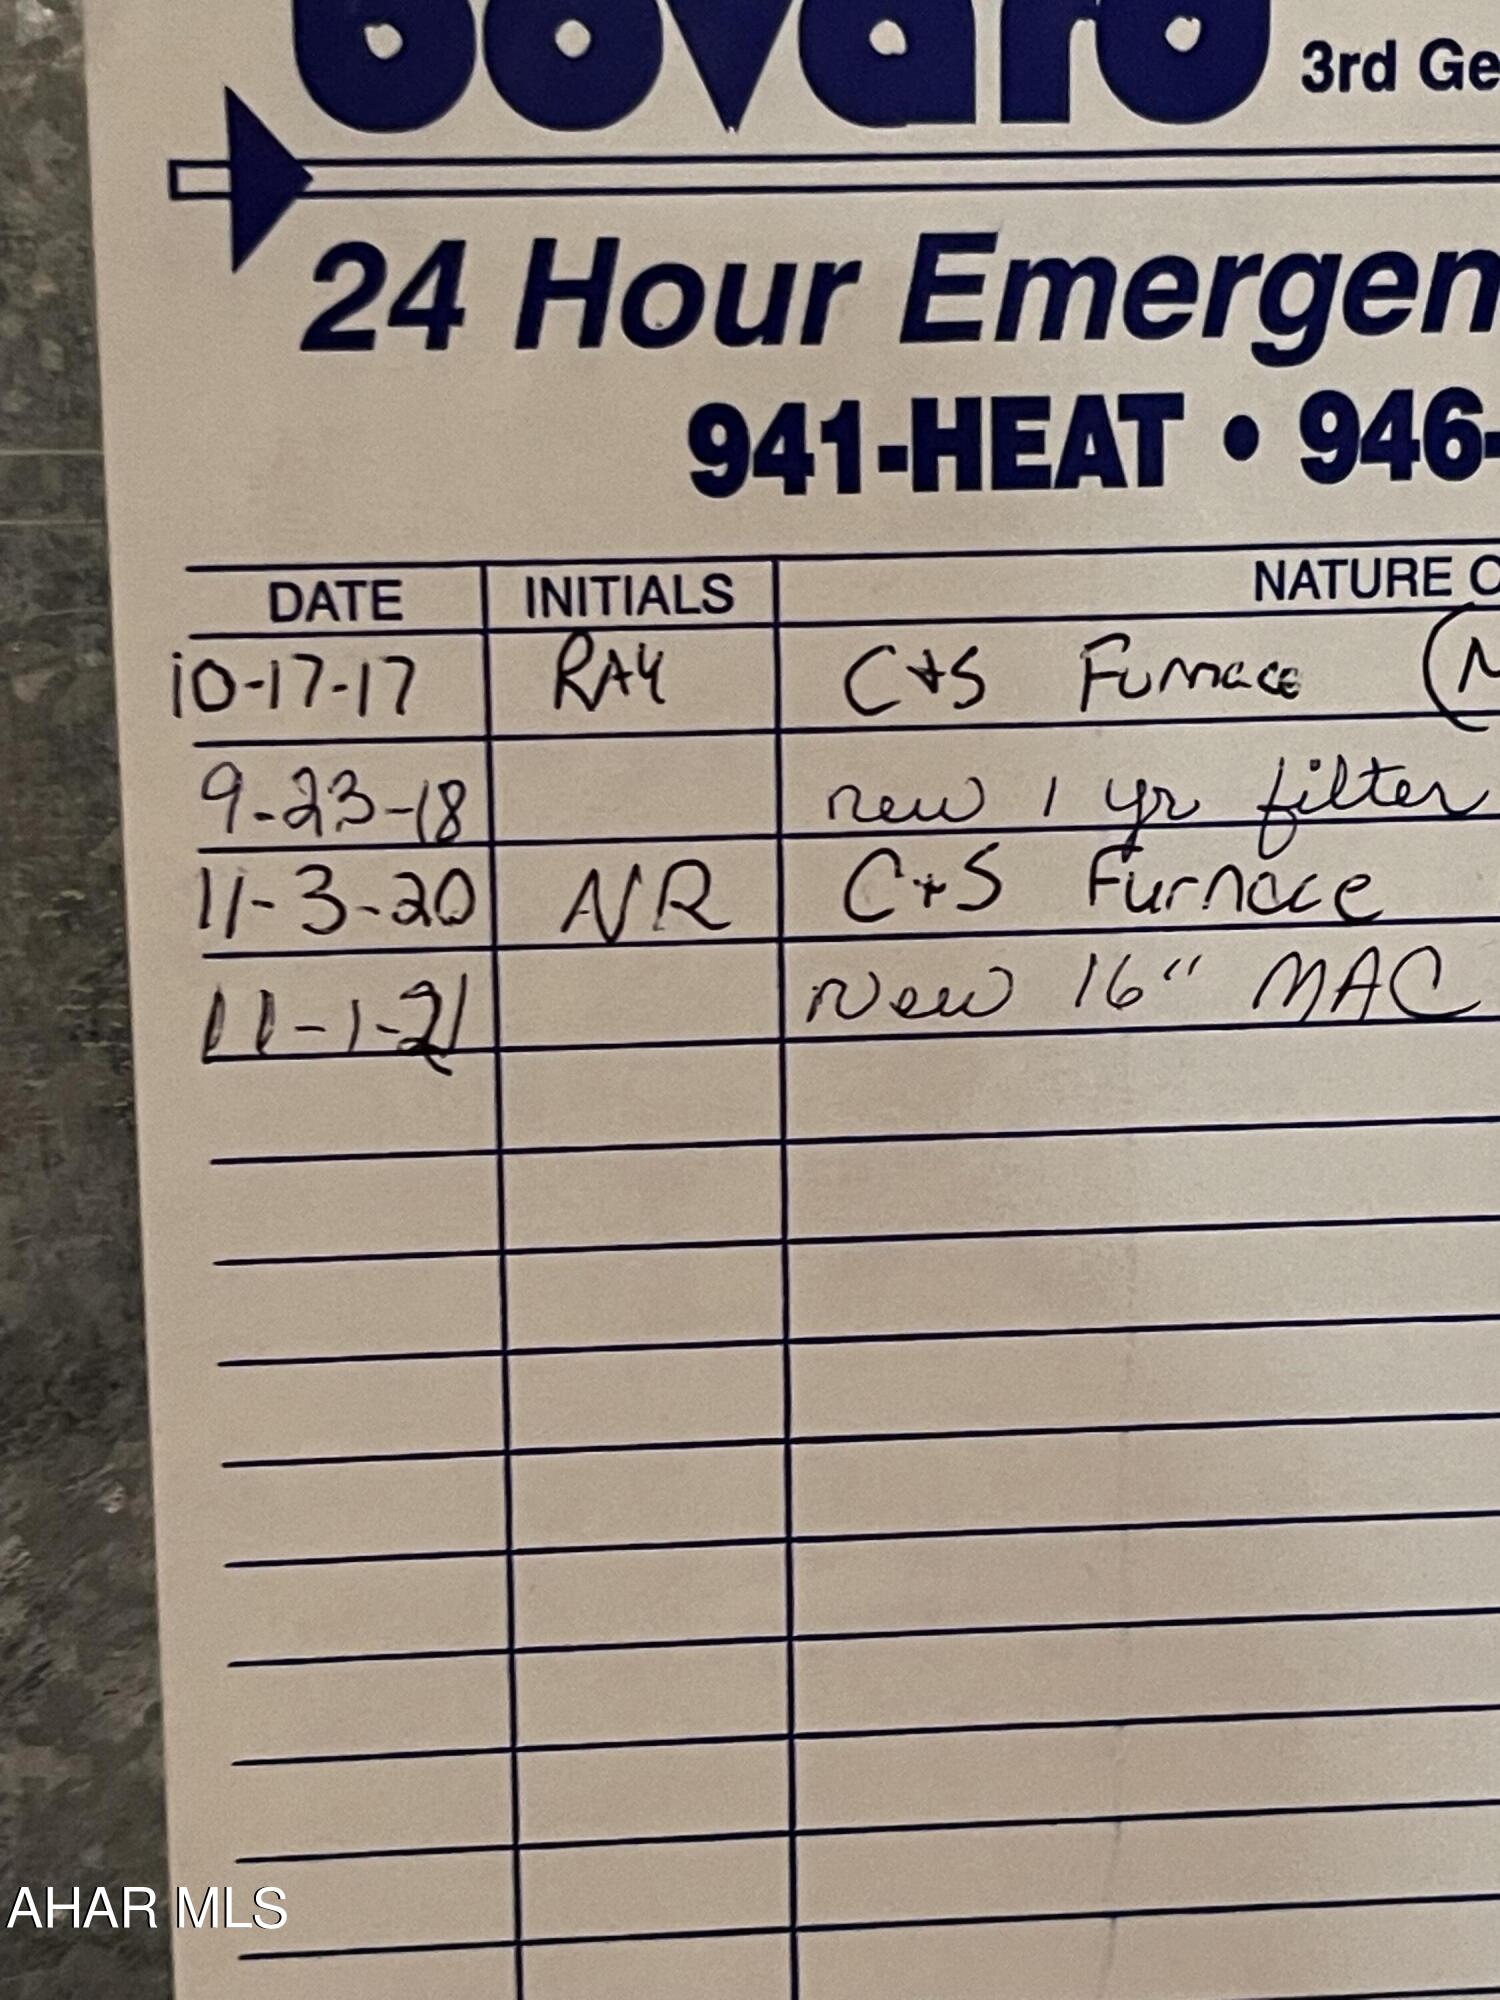 bovard
3rd Ge
24 Hour Emergen
941-HEAT • 946-
DATE INITIALS NATURE O
10-17-17 RAY C+S Furnace (N
9-23-18 new 1 yr filter
11-3-20 NR C+S Furnace
11-1-21 New 16" MAC
AHAR MLS